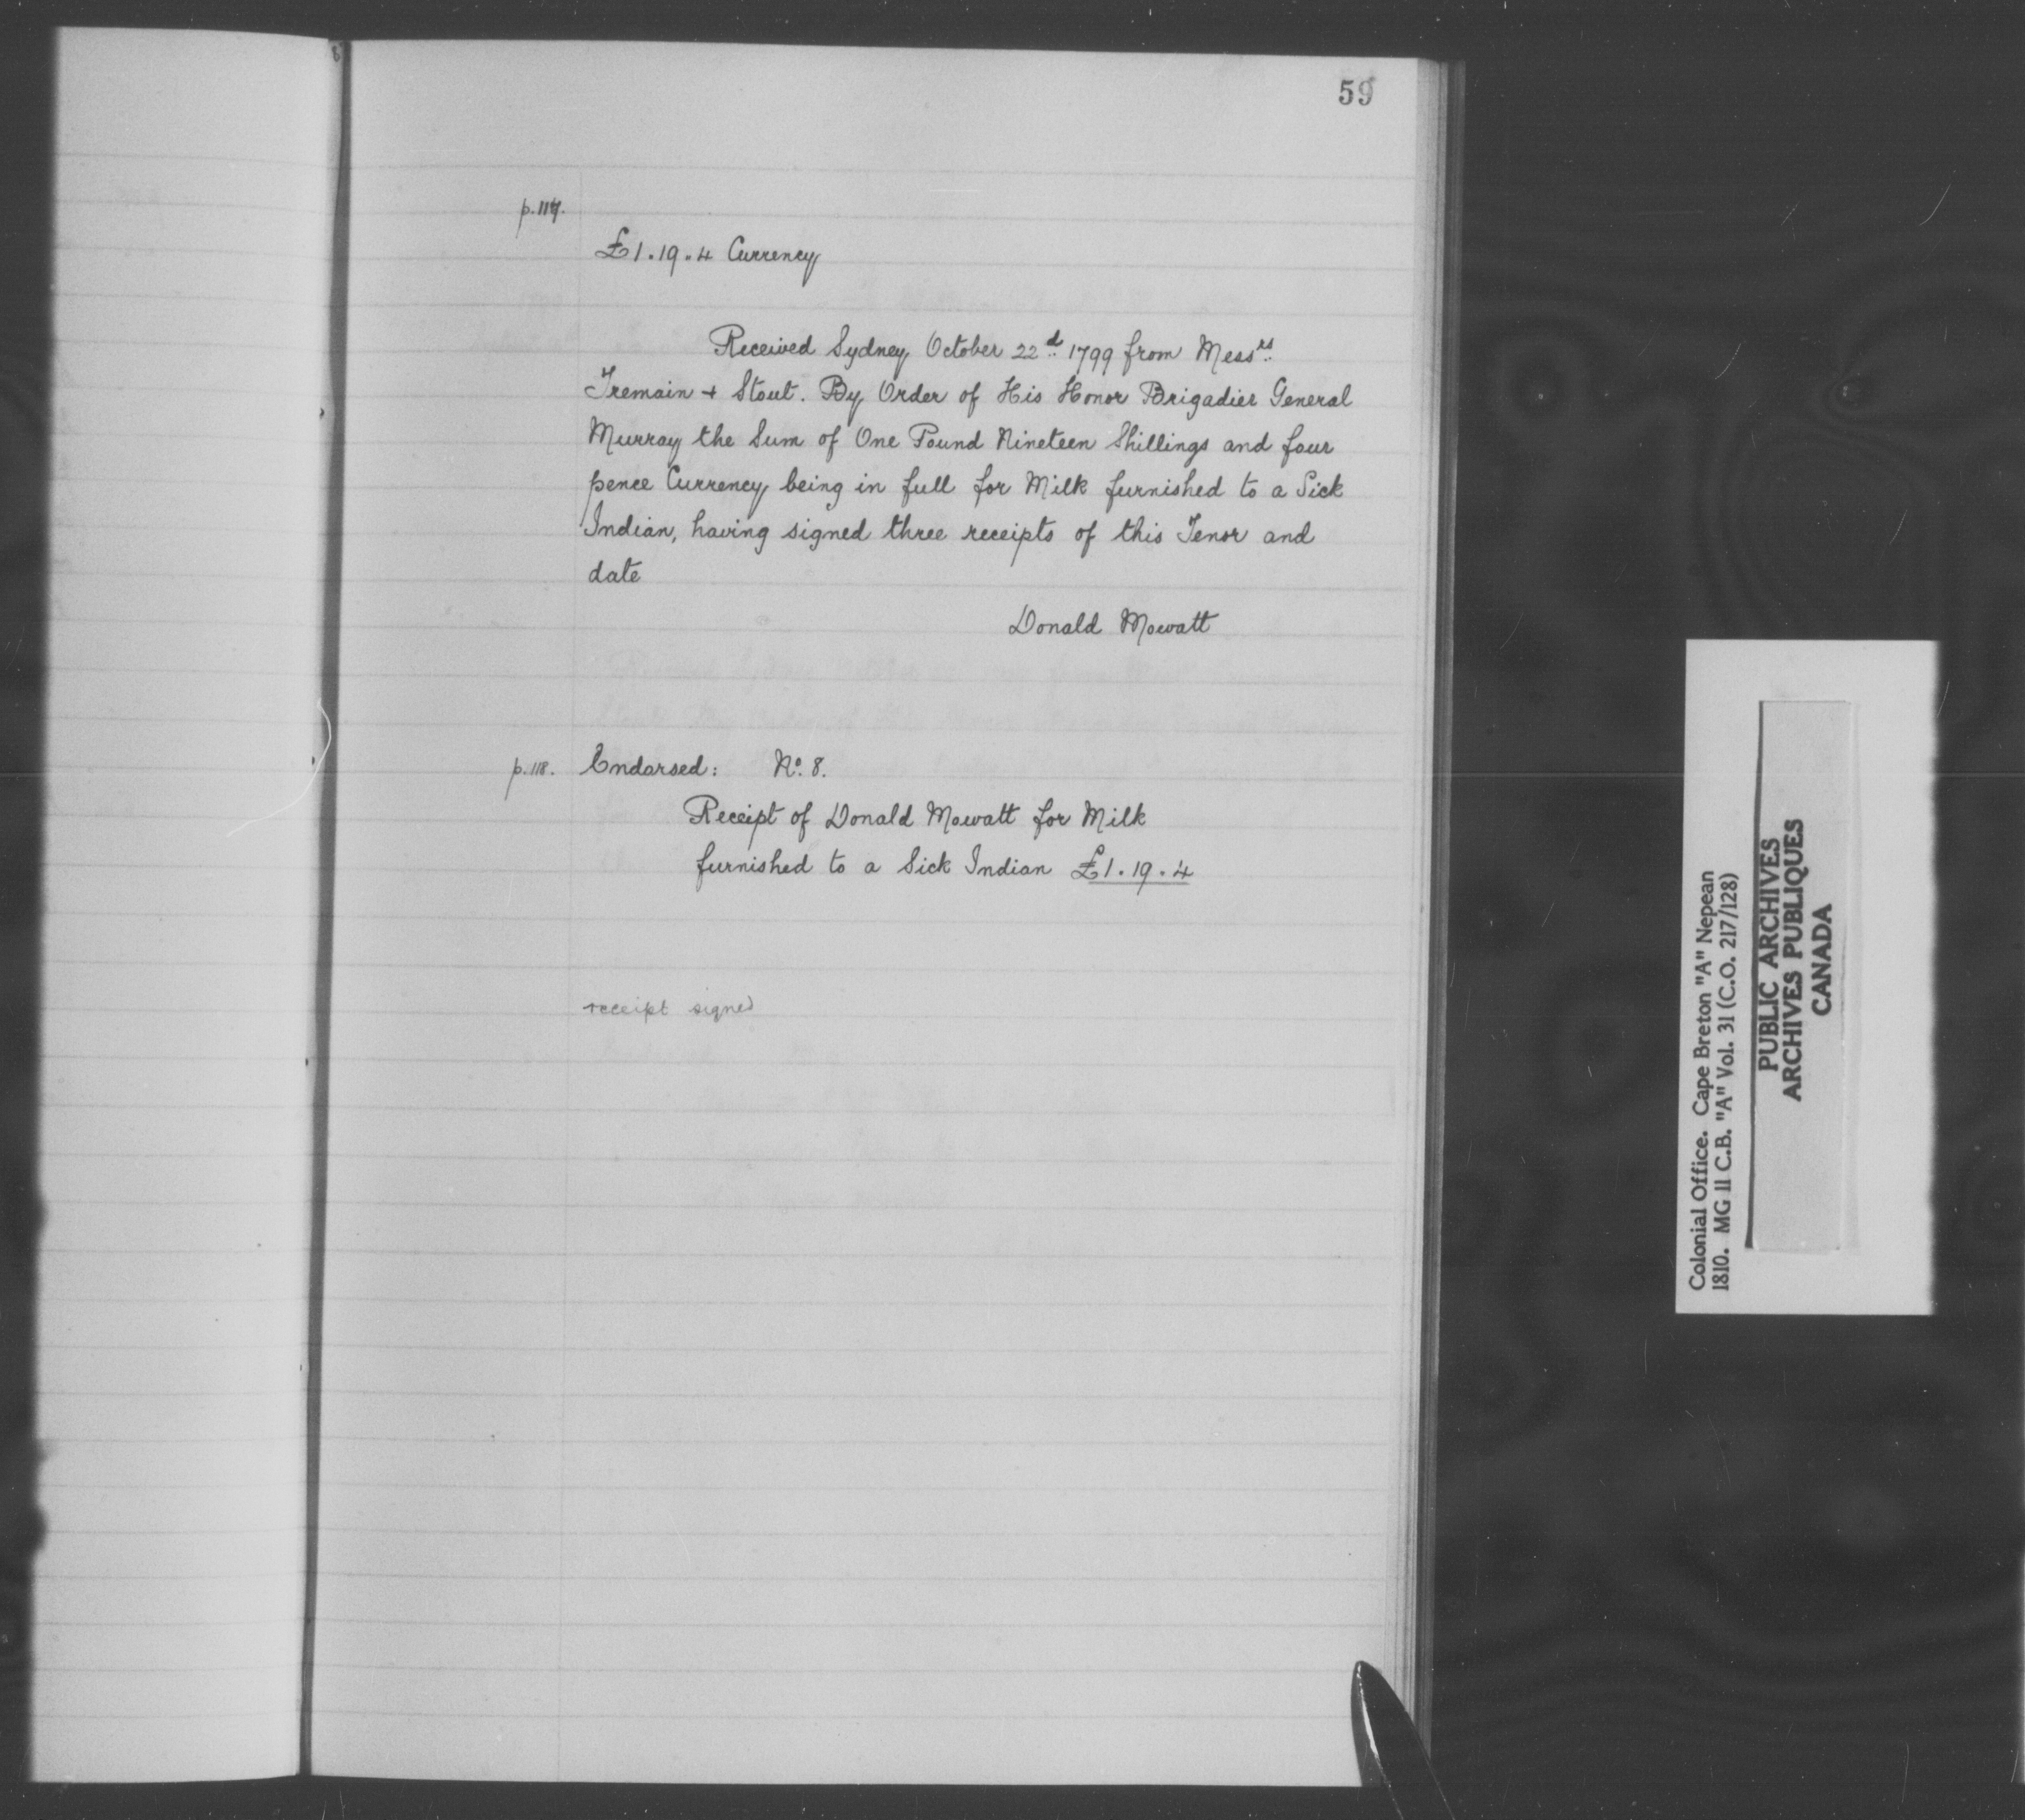 59
p. 117.
£1.19.4 Currency
Received Sydney October 22.d 1799 from Mess.rs
Tremain + Stout. By Order of His Honor Brigadier General
Murray the Sum of One Pound Nineteen Shillings and four
pence Currency being in full for Milk furnished to a Sick
Indian, having signed three receipts of this Tenor and
date
Donald Mowatt
p. 118. Endorsed: No. 8.
Receipt of Donald Mowatt for Milk
furnished to a Sick Indian £1.19.4
receipt signed
Colonial Office. Cape Breton "A" Nepean
1810. MG 11 C.B. "A" Vol. 31 (C.O. 217/128)
PUBLIC ARCHIVES
ARCHIVES PUBLIQUES
CANADA